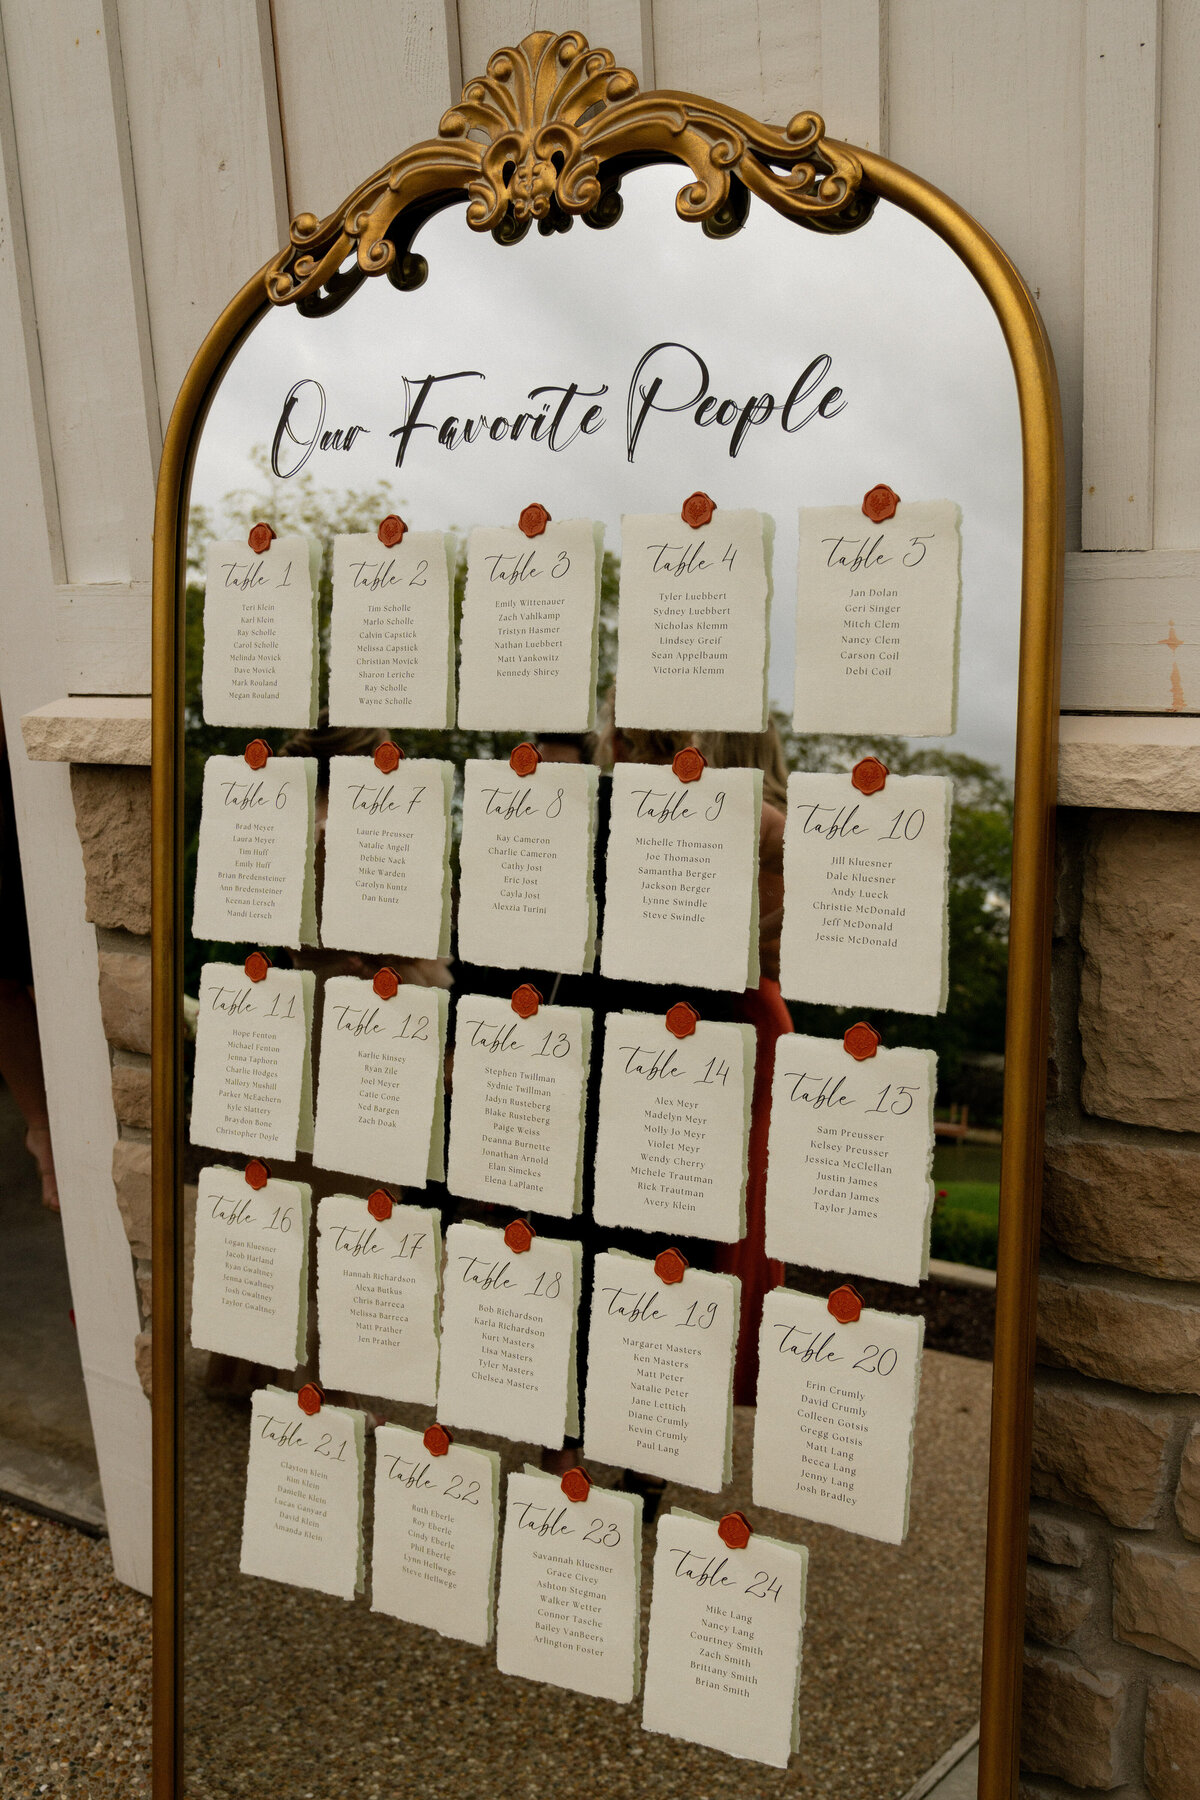 Our Favorite People
Table 1
Teri Klein
Karl Klein
Ray Scholle
Carol Scholle
Melinda Movick
Dave Movick
Mark Rouland
Megan Rouland
Table 2
Tim Scholle
Marlo Scholle
Calvin Capstick
Melissa Capstick
Christian Movick
Sharon Leriche
Ray Scholle
Wayne Scholle
Table 3
Emily Wittenauer
Zach Vahlkamp
Tristyn Hasmer
Nathan Luebbert
Matt Yankowitz
Kennedy Shirey
Table 4
Tyler Luebbert
Sydney Luebbert
Nicholas Klemm
Lindsey Greif
Sean Appelbaum
Victoria Klemm
Table 5
Jan Dolan
Geri Singer
Mitch Clem
Nancy Clem
Carson Coil
Debi Coil
Table 6
Brad Meyer
Laura Meyer
Tim Huff
Emily Huff
Brian Bredensteiner
Ann Bredensteiner
Keenan Lersch
Mandi Lersch
Table 7
Laurie Preusser
Natalie Angell
Debbie Nack
Mike Warden
Carolyn Kuntz
Dan Kuntz
Table 8
Kay Cameron
Charlie Cameron
Cathy Jost
Eric Jost
Cayla Jost
Alexzia Turini
Table 9
Michelle Thomason
Joe Thomason
Samantha Berger
Jackson Berger
Lynne Swindle
Steve Swindle
Table 10
Jill Kluesner
Dale Kluesner
Andy Lueck
Christie McDonald
Jeff McDonald
Jessie McDonald
Table 11
Hope Fenton
Michael Fenton
Jenna Taphorn
Charlie Hodges
Mallory Mushill
Parker McEachern
Kyle Slattery
Braydon Bone
Christopher Doyle
Table 12
Karlie Kinsey
Ryan Zile
Joel Meyer
Catie Cone
Ned Bargen
Zach Doak
Table 13
Stephen Twillman
Sydnie Twillman
Jadyn Rusteberg
Blake Rusteberg
Paige Weiss
Deanna Burnette
Jonathan Arnold
Elan Simckes
Elena LaPlante
Table 14
Alex Meyr
Madelyn Meyr
Molly Jo Meyr
Violet Meyr
Wendy Cherry
Michele Trautman
Rick Trautman
Avery Klein
Table 15
Sam Preusser
Kelsey Preusser
Jessica McClellan
Justin James
Jordan James
Taylor James
Table 16
Logan Kluesner
Jacob Harland
Ryan Gwaltney
Jenna Gwaltney
Josh Gwaltney
Taylor Gwaltney
Table 17
Hannah Richardson
Alexa Butkus
Chris Barreca
Melissa Barreca
Matt Prather
Jen Prather
Table 18
Bob Richardson
Karla Richardson
Kurt Masters
Lisa Masters
Tyler Masters
Chelsea Masters
Table 19
Margaret Masters
Ken Masters
Matt Peter
Natalie Peter
Jane Lettich
Diane Crumly
Kevin Crumly
Paul Lang
Table 20
Erin Crumly
David Crumly
Colleen Gotsis
Gregg Gotsis
Matt Lang
Becca Lang
Jenny Lang
Josh Bradley
Table 21
Clayton Klein
Kim Klein
Danielle Klein
Lucas Ganyard
David Klein
Amanda Klein
Table 22
Ruth Eberle
Roy Eberle
Cindy Eberle
Phil Eberle
Lynn Hellwege
Steve Hellwege
Table 23
Savannah Kluesner
Grace Civey
Ashton Stegman
Walker Wetter
Connor Tasche
Bailey VanBeers
Arlington Foster
Table 24
Mike Lang
Nancy Lang
Courtney Smith
Zach Smith
Brittany Smith
Brian Smith